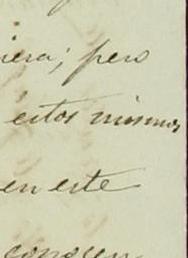 iera; pero
estos mismos
en este
conocen